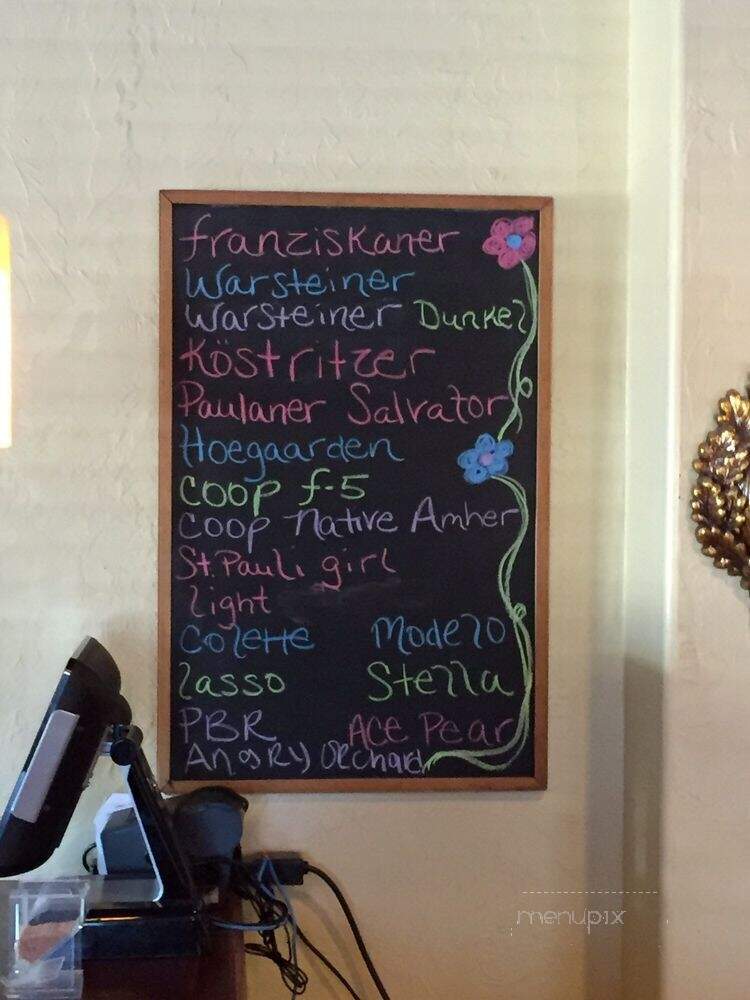 franziskaner
Warsteiner
Warsteiner Dunkel
Köstritzer
Paulaner Salvator
Hoegaarden
COOP f-5
COOP Native Amber
St. Pauli girl
light
Colette Modelo
lasso Stella
PBR Ace Pear
Angry Orchard
menupix